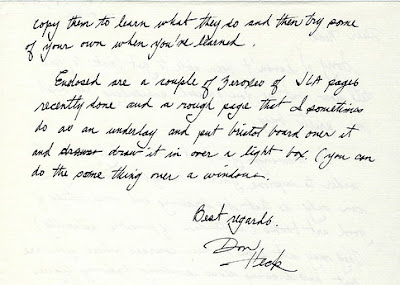 copy them to learn what they do and then try some
of your own when you've learned.
Enclosed are a couple of Zeroxes of JLA pages
recently done and a rough page that I sometimes
do as an underlay and put bristol board over it
and draw it in over a light box. (you can
do the same thing over a window.
Best regards.
Don
Heck